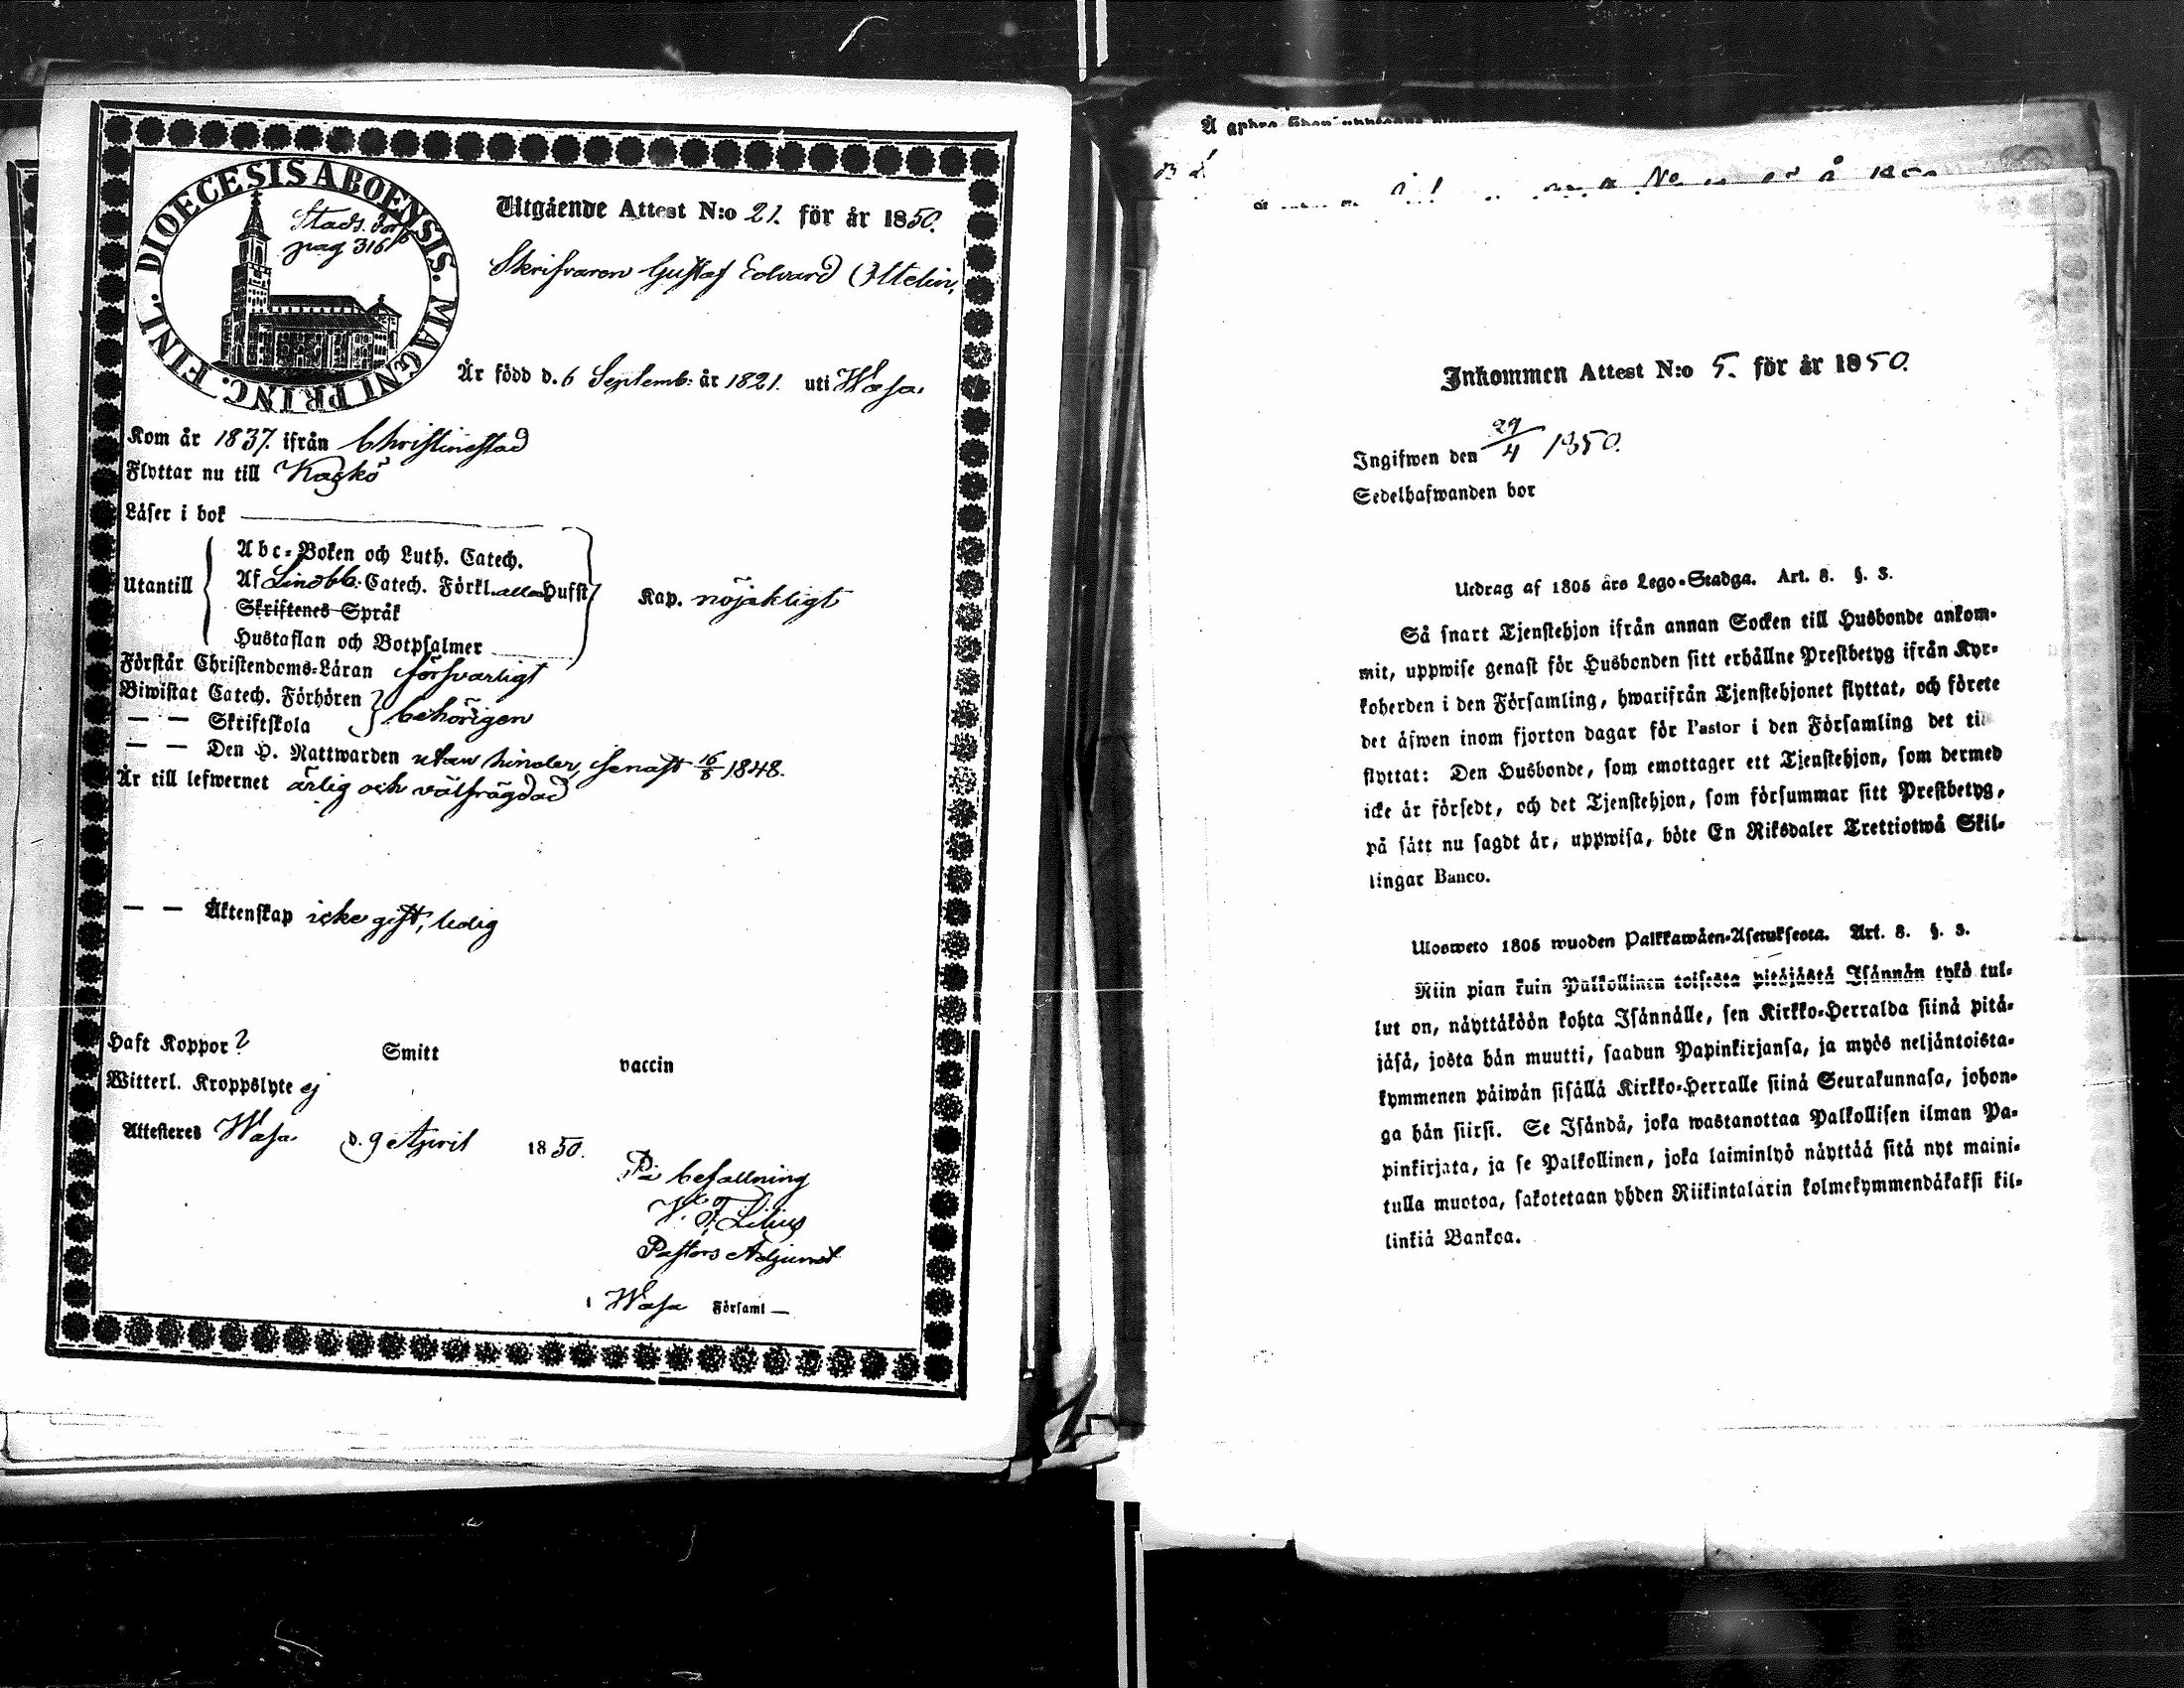 DIOECESIS ABOENSIS. MAGNI PRINC. FINL.
Stads. för
pag 316
Utgående Attest N:o 21. för år 1850.
Skrifvaren Gustaf Edvard Ottelin,
Är född d. 6 Septemb: år 1821. uti Wasa.
Kom år 1837. ifrån Christinestad
Flyttar nu till Kaskö
Läser i bok
Utantill
Abc-Boken och Luth. Catech.
Af Lindbl. Catech. Förkl. alla Hufst
Skriftenes Språk
Hustaflan och Botpsalmer
Kap. nöjaktigt
Förstår Christendoms-Läran försvarligt
Biwistat Catech. Förhören
— — Skriftskola
behörigen
— — Den H. Nattwarden utan hinder, senast 16/8 1848.
Är till lefwernet ärlig och välfrägdad
— — Äktenskap icke gift, ledig
Haft Koppor? Smitt vaccin
Witterl. Kroppslyte ej
Attesteres Wasa d. 9 April 1850.
På befallning
Lilius
Pastors Adjunct
i Wasa Församl—
Inkommen Attest N:o 5. för år 1850.
Ingifwen den 29/4 1850.
Sedelhafwanden bor
Utdrag af 1805 års Lego-Stadga. Art. 8. §. 3.
Så snart Tjenstehjon ifrån annan Socken till Husbonde ankom-
mit, uppwise genast för Husbonden sitt erhållne Prestbetyg ifrån Kyr-
koherden i den Församling, hwarifrån Tjenstehjonet flyttat, och förete
det äfwen inom fjorton dagar för Pastor i den Församling det till
flyttat: Den Husbonde, som emottager ett Tjenstehjon, som dermed
icke är försedt, och det Tjenstehjon, som försummar sitt Prestbetyg,
på sätt nu sagdt är, uppwisa, böte En Riksdaler Trettiotwå Skil-
lingar Banco.
Ulosweto 1805 wuoden Palkkawäen-Asetuksesta. Art. 8. §. 3.
Niin pian kuin Palkollinen toisesta pitäjästä Isännän tykö tul-
lut on, näyttäköön kohta Isännälle, sen Kirkko-Herralda siinä pitä-
jäsä, josta hän muutti, saadun Papinkirjansa, ja myös neljäntoista-
kymmenen päiwän sisällä Kirkko-Herralle siinä Seurakunnasa, johon-
ga hän siirsi. Se Isändä, joka wastanottaa Palkollisen ilman Pa-
pinkirjata, ja se Palkollinen, joka laiminlyö näyttää sitä nyt maini-
tulla muotoa, sakotetaan yhden Riikintalarin kolmekymmendäkaksi kil-
linkiä Bankoa.